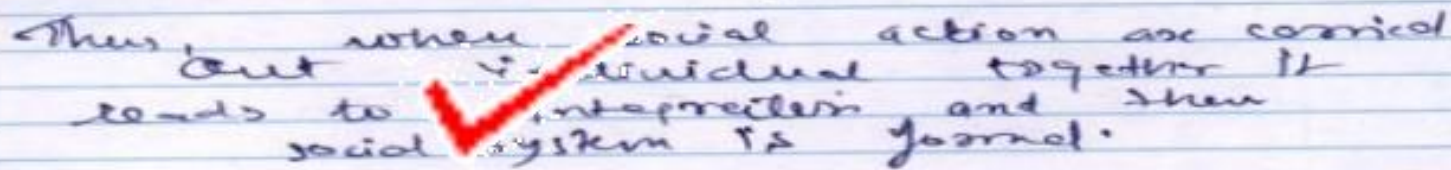 Thus, when social action are carried
out individual together it
leads to and then
social system is formed.